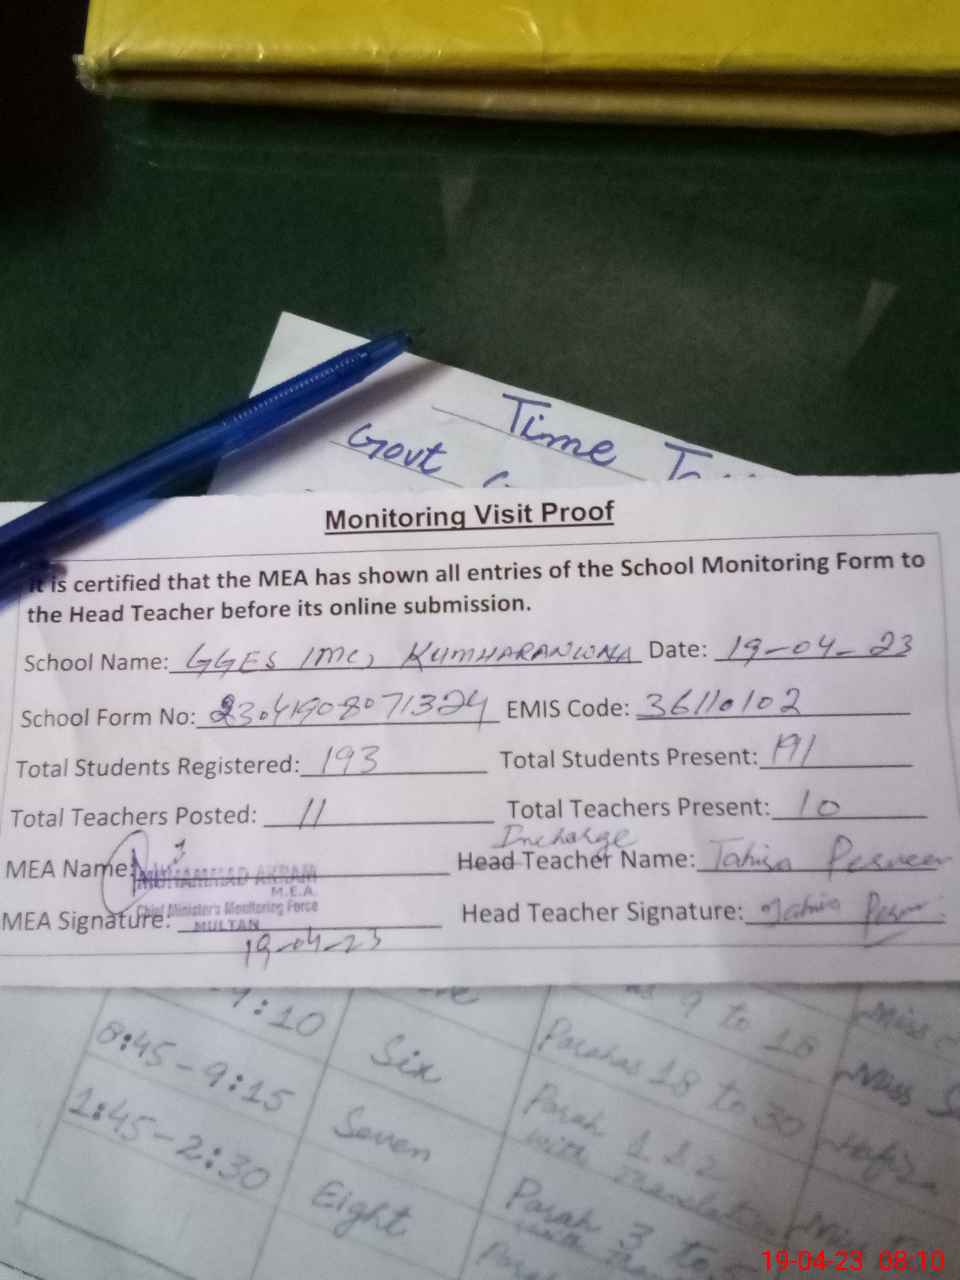 Time
Govt
Monitoring Visit Proof
It is certified that the MEA has shown all entries of the School Monitoring Form to
the Head Teacher before its online submission.
School Name: GGES IMC, KUMHARANWNA Date: 19-04-23
School Form No: 23041908071324 EMIS Code: 36110102
Total Students Registered: 193 Total Students Present: 191
Total Teachers Posted: 11 Total Teachers Present: 10
Incharge
MEA Name: MUHAMMAD AKRAM Head Teacher Name: Tahira Perveen
M.E.A.
MEA Signature: Chief Minister's Monitoring Force Head Teacher Signature: Tahira
MULTAN
19-04-23
9:10 9 to 18 Miss
8:45-9:15 Six Parahas 18 to 30 Miss
1:45-2:30 Seven Parah 1 & 2 Hafiz
with
Eight Parah 3 to Miss
with
19-04-23 08:10